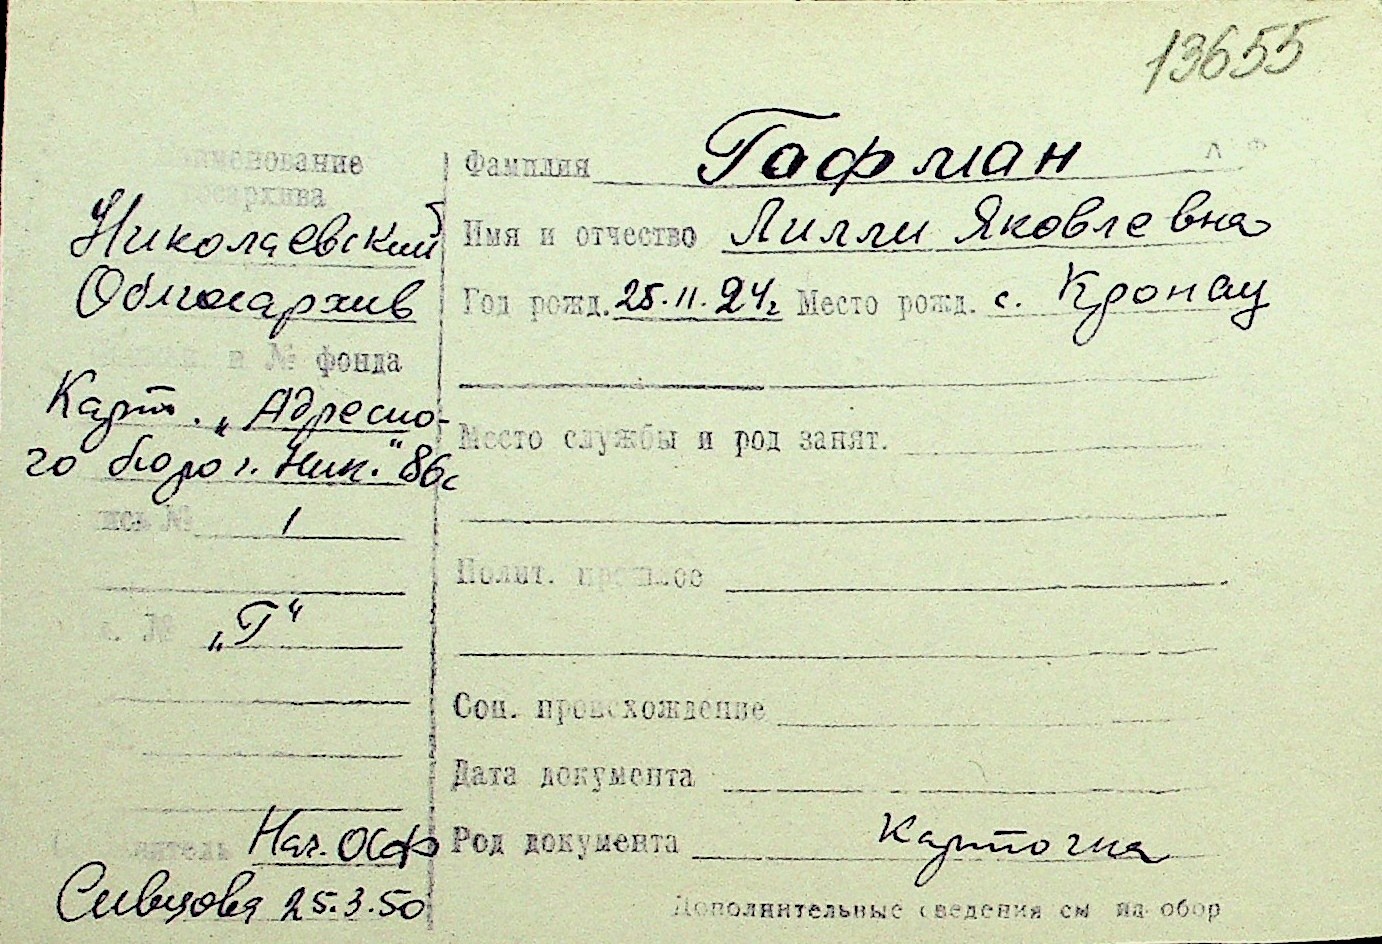 13655
Наименование
госархива
Николаевский
Облгосархив
и № фонда
Карт. „Адресно-
го бюро г. Ник.“ 86с
пись № 1
№ „Г“
Нач. ОСФ
25.3.50
Фамилия Гофман
Имя и отчество Лилли Яковлевна
Год рожд. 25.11.24г Место рожд. с. Кронау
Место службы и род занят.
Полит. прошлое
Соц. происхождение
Дата документа
Род документа Карточка
Дополнительные сведения см на обор